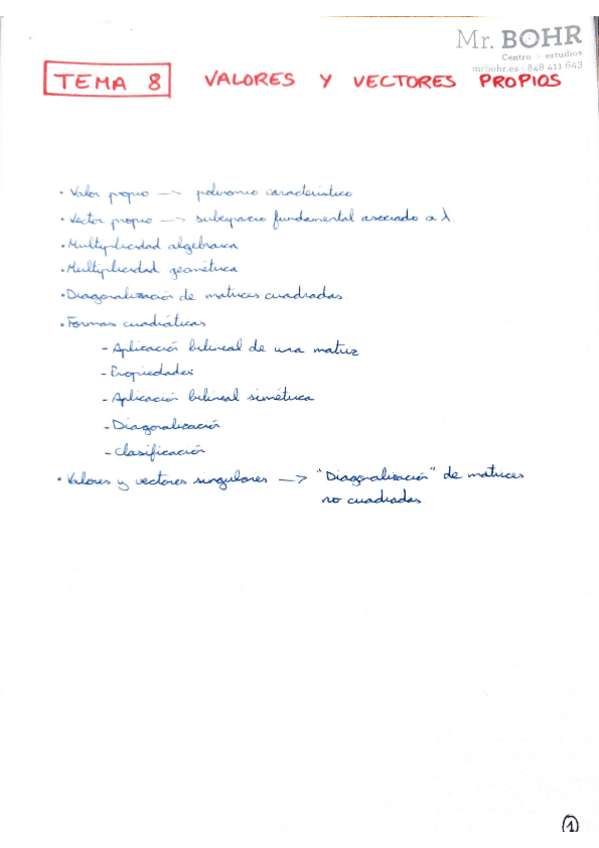 Mr. BOHR
Centro de estudios
mrbohr.es - 848 411 643
TEMA 8 VALORES Y VECTORES PROPIOS
· Valor propio —> polinomio característico
· Vector propio —> subespacio fundamental asociado a λ.
· Multiplicidad algebraica
· Multiplicidad geométrica
· Diagonalización de matrices cuadradas.
· Formas cuadráticas
- Aplicación bilineal de una matriz
- Propiedades
- Aplicación bilineal simétrica
- Diagonalización
- Clasificación
· Valores y vectores singulares —> "Diagonalización" de matrices
no cuadradas
1